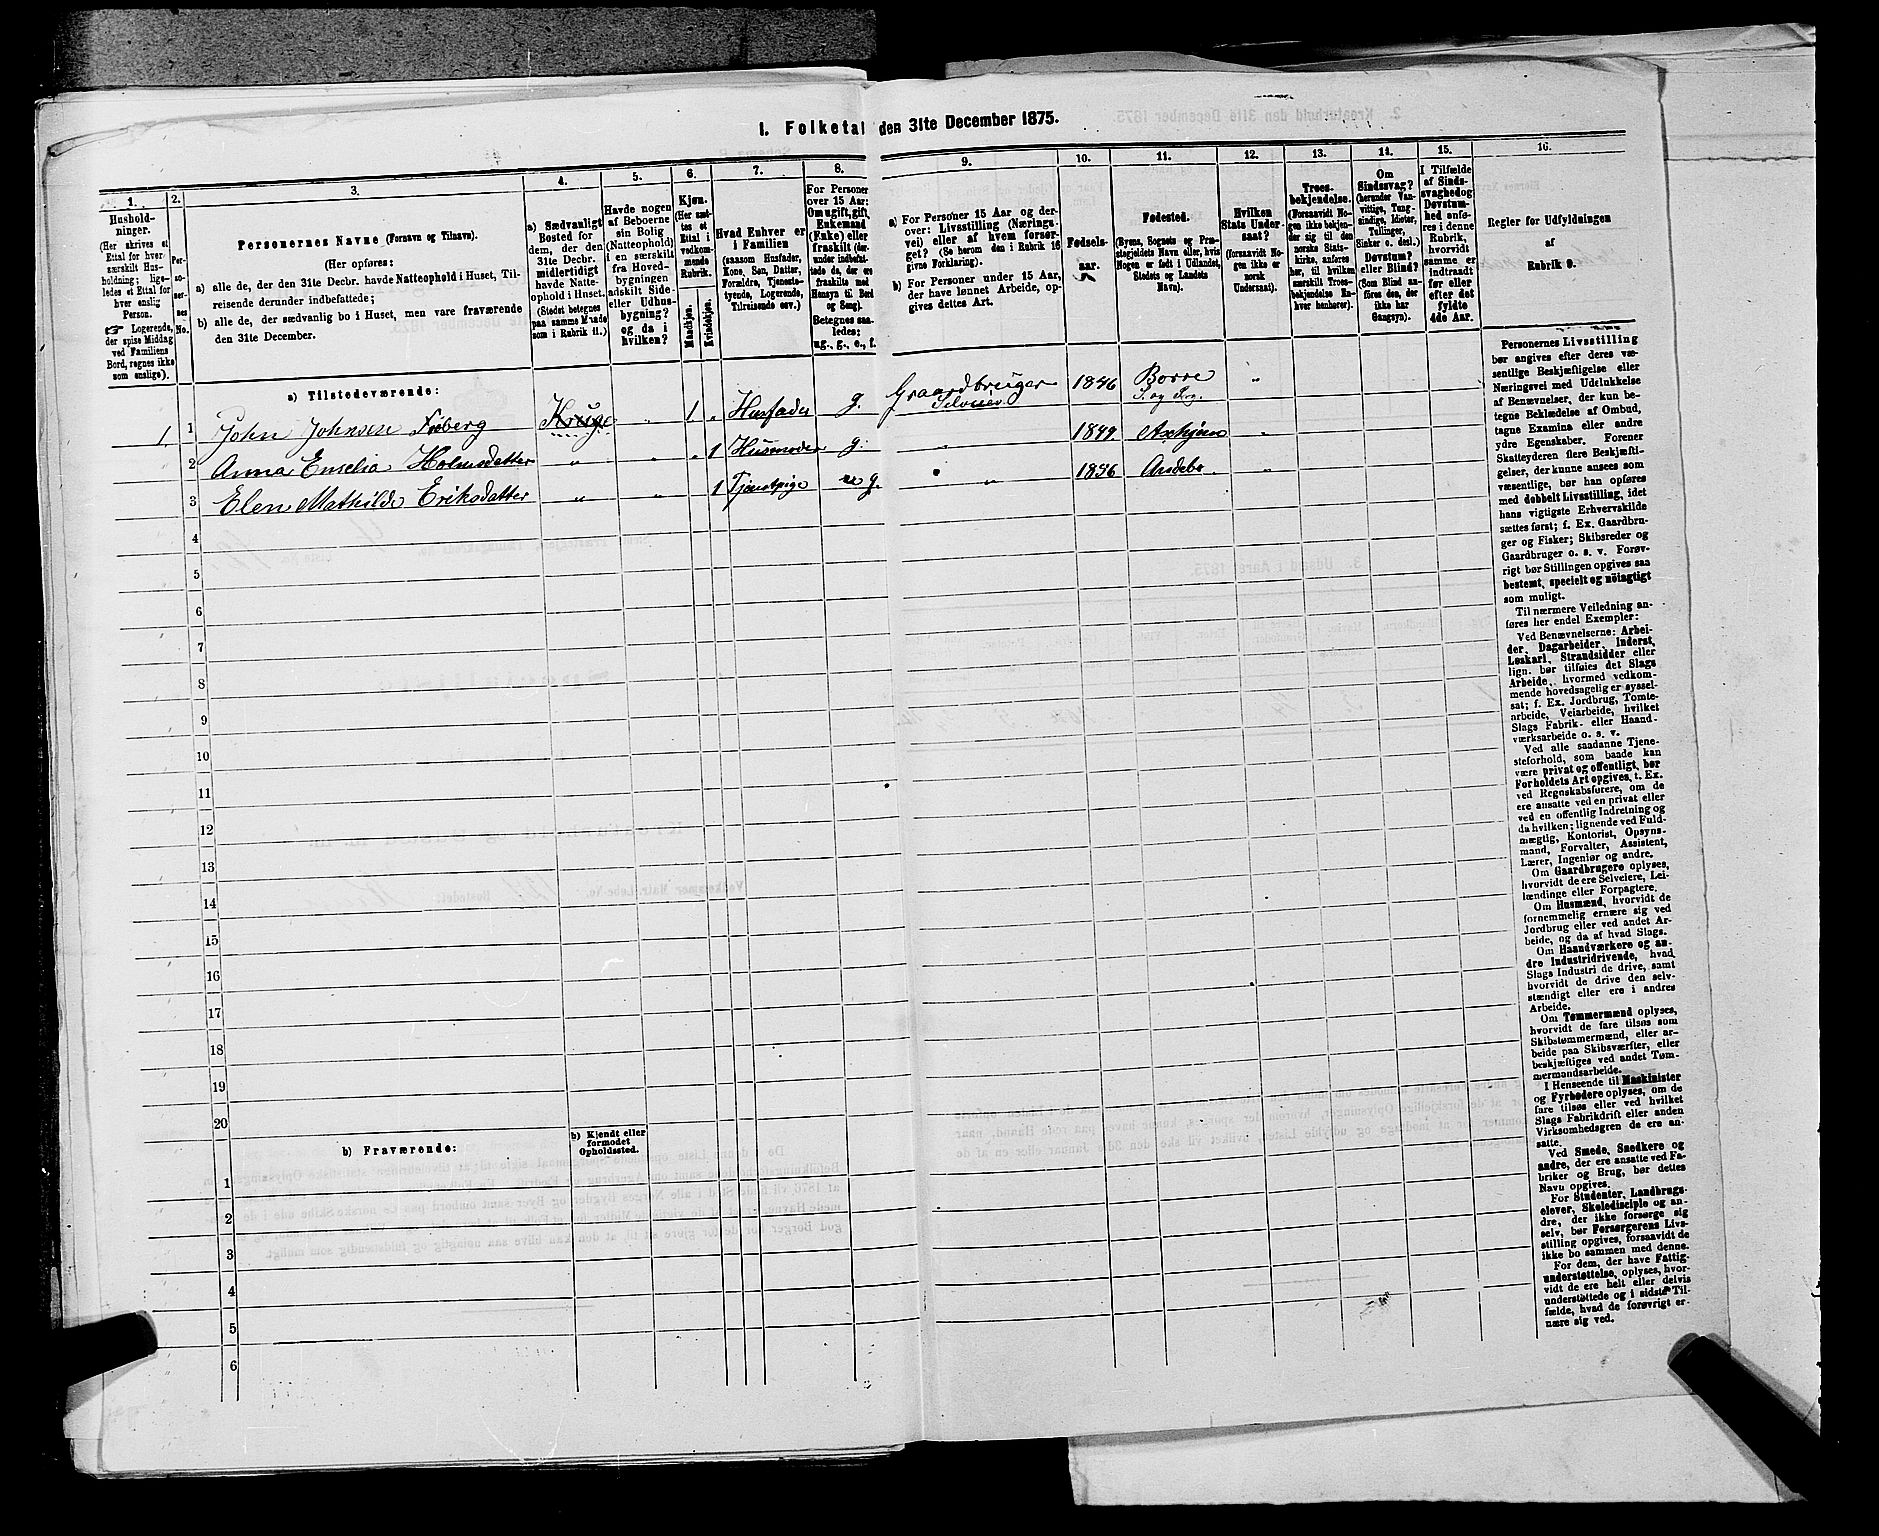 1. Folketal den 31te December 1875.
1.
2.
3.
4.
5.
6.
7.
8.
9.
10.
11.
12.
13.
14.
15.
16.
Hushold-
ninger.
(Her skrives et
Ettal for hver
særskilt Hus-
holdning; lige-
ledes et Ettal for
hver enslig
Person.
☞ Logerende,
der spise Middag
ved Familiens
Bord, regnes ikke
som enslige).
Per-
so-
ner-
nes
No.
Personernes Navne (Fornavn og Tilnavn).
(Her opføres:
a) alle de, der den 31te Decbr. havde Natteophold i Huset, Til-
reisende derunder indbefattede;
b) alle de, der sædvanlig bo i Huset, men vare fraværende
den 31te December.
a) Sædvanligt
Bosted for
dem, der den
31te Decbr.
midlertidigt
havde Natte-
ophold i Huset.
(Stedet betegnes
paa samme Maade
som i Rubrik 11.)
Havde nogen
af Beboerne
sin Bolig
(Natteophold)
i en særskilt
fra Hoved-
bygningen
adskilt Side-
eller Udhus-
bygning?
og da i
hvilken?
Kjøn.
(Her sæt-
tes et
Ettal i
vedkom-
mende
Rubrik.
Mandkjøn.
Kvindekjøn.
Hvad Enhver er
i Familien
(saasom Husfader,
Kone, Søn, Datter,
Forældre, Tjeneste-
tyende, Logerende,
Tilreisende osv.)
For Personer
over 15 Aar:
Om ugift, gift,
Enkemand
(Enke) eller
fraskilt (der-
under indbefat-
tede de, der ere
fraskilte med
Hensyn til Bord
og Seng).
Betegnes saa-
ledes:
ug., g., e., f.
a) For Personer 15 Aar og der-
over: Livsstilling (Nærings-
vei) eller af hvem forsør-
get? (Se herom den i Rubrik 16
givne Forklaring).
b) For Personer under 15 Aar,
der have lønnet Arbeide, op-
gives dettes Art.
Fødsels-
aar.
Fødested.
(Byens, Sognets og Præ-
stegjeldets Navn eller, hvis
Nogen er født i Udlandet,
Stedets og Landets
Navn).
Hvilken
Stats Under-
saat?
(forsaavidt No-
gen ikke er
norsk
Undersaat).
Troes-
bekjendelse.
(Forsaavidt No-
gen ikke bekjen-
der sig til den
norske Stats-
kirke, anføres
her, til hvilken
særskilt Troes-
bekjendelse En-
hver henhører).
Om
Sindssvag?
(herunder Van-
vittige, Tung-
sindige, Idioter,
Tullinger,
Sinker o. desl.)
Døvstum?
eller Blind?
(Som Blind an-
føres den, der
ikke har
Gangsyn).
I Tilfælde
af Sinds-
svaghed og
Døvstum-
hed anfø-
res i denne
Rubrik,
hvorvidt
samme er
indtraadt
før eller
efter det
fyldte
4de Aar.
Regler for Udfyldningen
af
Rubrik 9.
a) Tilstedeværende:
1 1 John Johnsen Fuberg Kruge „ 1 „ Husfader g. Gaardbruger Selveier 1846 Borre S. og Prg. „
2 Anna Emelia Holmsdatter „ „ „ 1 Husmoder g. „ 1849 „
3 Elen Mathilde Eriksdatter „ „ 1 Tjenstpige „ 1846 Andebo „
4
5
6
7
8
9
10
11
12
13
14
15
16
17
18
19
20
b) Fraværende:
b) Kjendt eller
formodet
Opholdssted.
1
2
3
4
5
6
Personernes Livsstilling
bør angives efter deres væ-
sentlige Beskjæftigelse eller
Næringsvei med Udelukkelse
af Benævnelser, der kun be-
tegne Beklædelse af Ombud,
tagne Examina eller andre
ydre Egenskaber. Forener
Skatteyderen flere Beskjæfti-
gelser, der kunne ansees som
væsentlige, bør han opføres
med dobbelt Livsstilling, idet
hans vigtigste Erhvervskilde
sættes først; f. Ex. Gaardbru-
ger og Fisker; Skibsreder og
Gaardbruger o. s. v. Forøv-
rigt bør Stillingen opgives saa
bestemt, specielt og nöiagtigt
som muligt.
Til nærmere Veiledning an-
føres her endel Exempler:
Ved Benævnelserne: Arbei-
der, Dagarbeider, Inderst,
Løskarl, Strandsidder eller
lign. bør tilføies det Slags
Arbeide, hvormed vedkom-
mende hovedsagelig er syssel-
sat; f. Ex. Jordbrug, Tomte-
arbeide, Veiarbeide, hvilket
Slags Fabrik- eller Haand-
værksarbeide o. s. v.
Ved alle saadanne Tjene-
steforhold, som baade kan
være privat og offentligt, bør
Forholdets Art opgives, t. Ex.
ved Regnskabsførere, om de
ere ansatte ved en privat eller
ved en offentlig Indretning og
da hvilken; lignende ved Fuld-
mægtig, Kontorist, Opsyns-
mand, Forvalter, Assistent,
Lærer, Ingeniør og andre.
Om Gaardbrugere oplyses,
hvorvidt de ere Selveiere, Lei-
lændinge eller Forpagtere.
Om Husmænd, hvorvidt de
fornemmelig ernære sig ved
Jordbrug eller ved andet Ar-
beide, og da af hvad Slags.
Om Haandværkere og an-
dre Industridrivende, hvad
Slags Industri de drive, samt
hvorvidt de drive den selv-
stændigt eller ere i andres
Arbeide.
Om Tømmermænd oplyses,
hvorvidt de fare tilsøs som
Skibstømmermænd, eller ar-
beide paa Skibsværfter, eller
beskjæftiges ved andet Tøm-
mermandsarbeide.
I Henseende til Maskinister
og Fyrbødere oplyses, om de
fare tilsøs eller ved hvilket
Slags Fabrikdrift eller anden
Virksomhedsgren de ere an-
satte.
Ved Smede, Snedkere og
andre, der ere ansatte ved Fa-
briker og Brug, bør dettes
Navn opgives.
For Studenter, Landbrugs-
elever, Skoledisciple og an-
dre, der ikke forsørge sig
selv, bør Forsørgerens Livs-
stilling opgives, forsaavidt de
ikke bo sammen med denne.
For dem, der have Fattig-
understøttelse, oplyses, hvor-
vidt de ere helt eller delvis
understøttede og i sidste Til-
fælde, hvad de forøvrigt er-
nære sig ved.